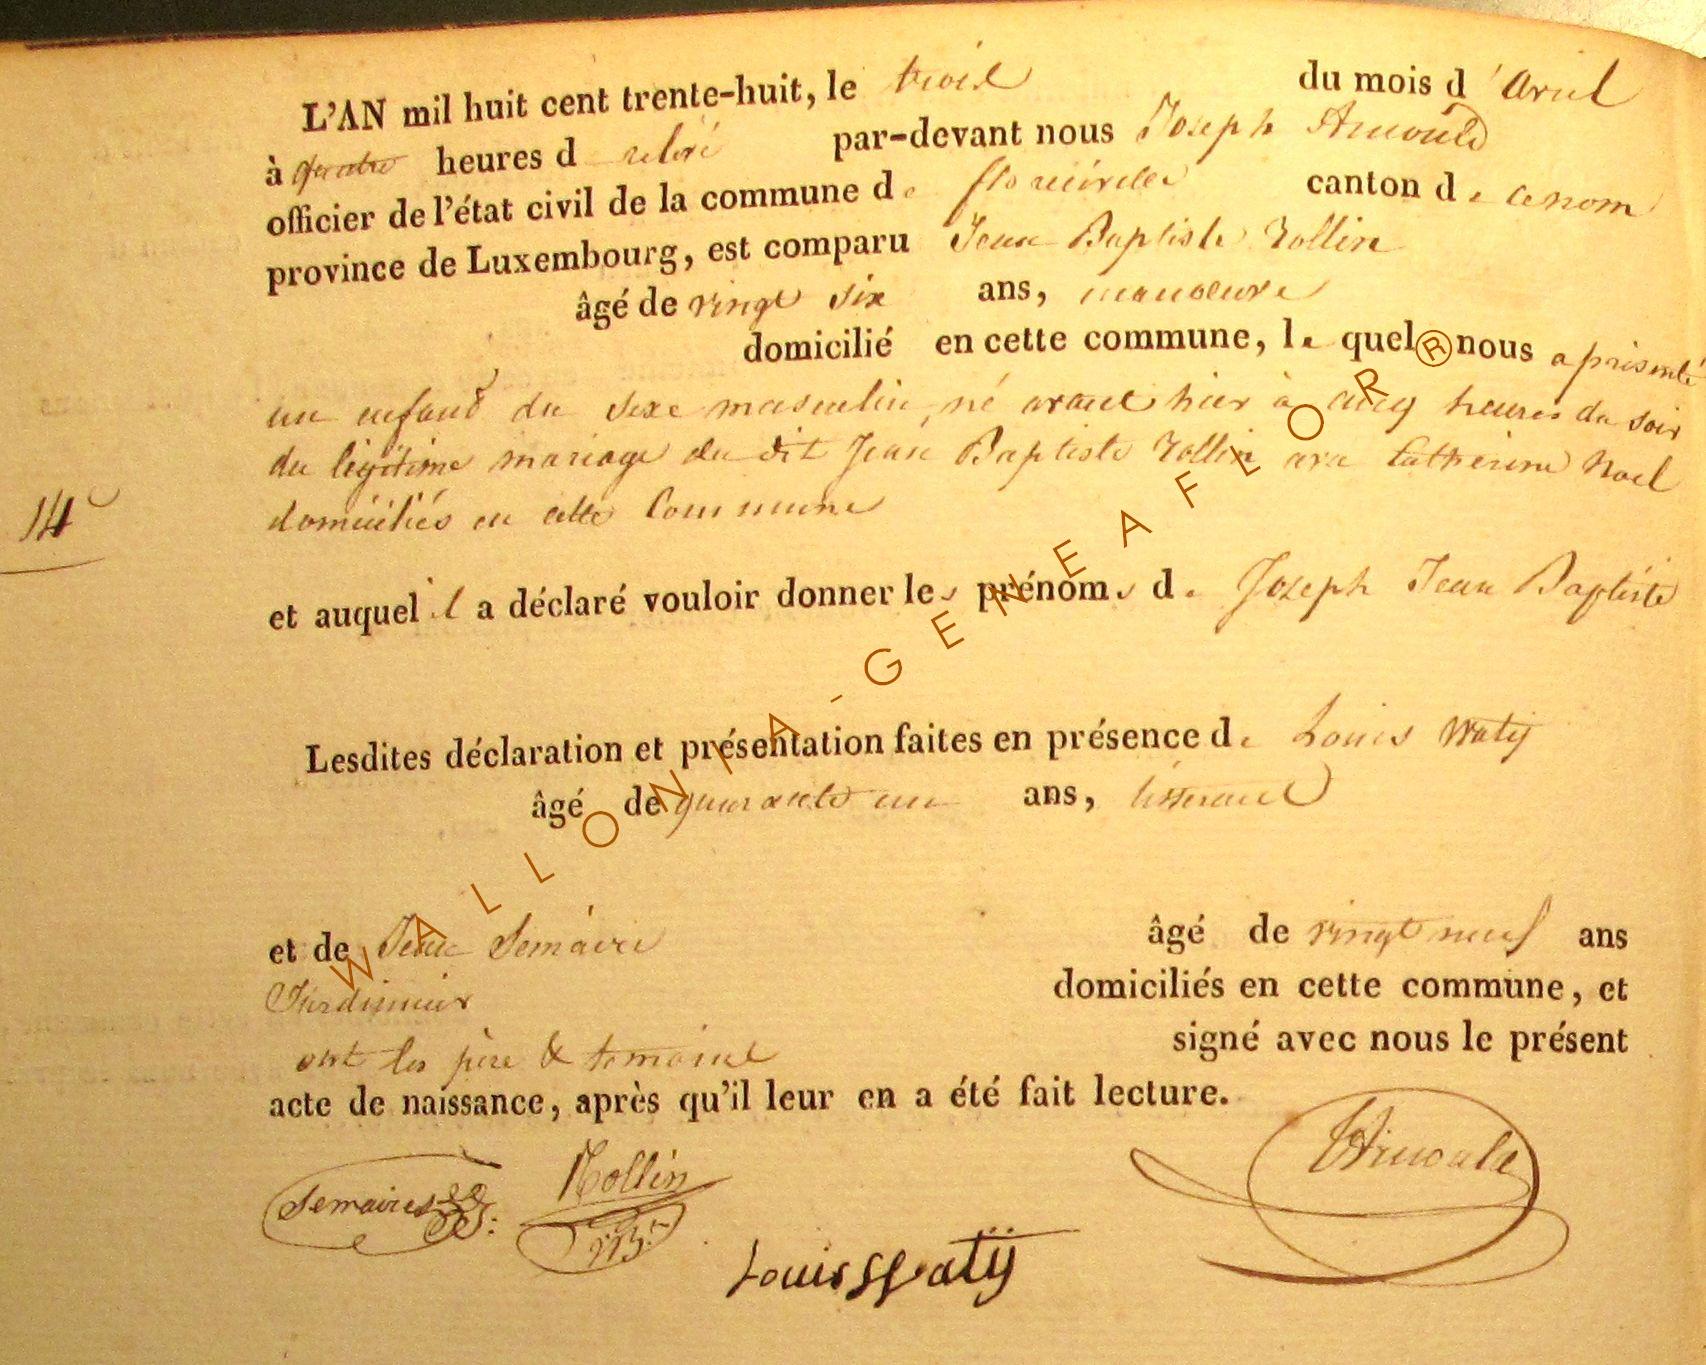 L'AN mil huit cent trente-huit, le trois du mois d'avril
à quatre heures d relevé par-devant nous Joseph Arnould
officier de l'état civil de la commune de florenville canton de
province de Luxembourg, est comparu Jean Baptiste Rollin
âgé de vingt six ans, manoeuvre
domicilié en cette commune, le quel nous a présenté
un enfant du sexe masculin, né avant hier à cinq heures du soir
du légitime mariage du dit Jean Baptiste Rollin avec Catherine Noel
14
domiciliés en cette Commune
et auquel il a déclaré vouloir donner les prénoms de Joseph Jean Baptiste
Lesdites déclaration et présentation faites en présence de Louis Watÿ
âgé de quarante un ans, tisserand
et de Jean Semaire âgé de vingt neuf ans
Jardinier domiciliés en cette commune, et
ont les père & temoins signé avec nous le présent
acte de naissance, après qu'il leur en a été fait lecture.
Arnould
Rollin
Semaire
Louis Watÿ
WALLONIA-GENEAFLOR®